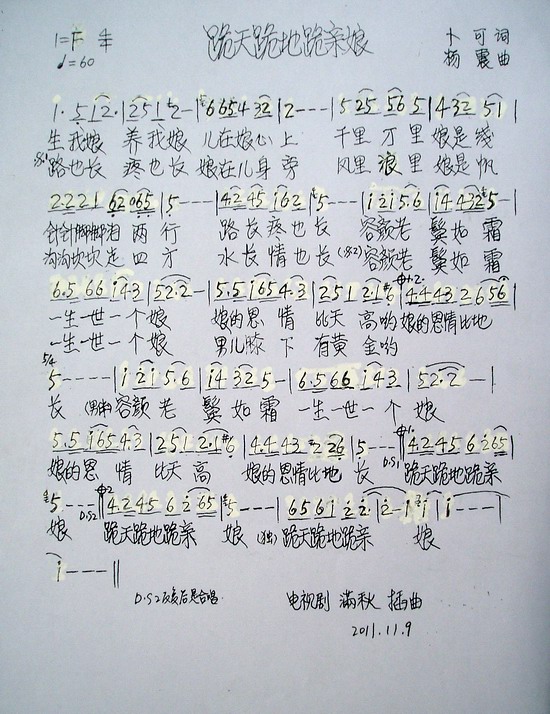 1=F 跪天跪地跪亲娘 卜可词
♩=60 杨震曲
1·51̂2·|2̂512-|6654 32|2---|5 25 56 5|432 51|
生我娘 养我娘 儿在娘心上 千里 万里 娘是线
路也长 疼也长 娘在儿身旁 风里 浪里 娘是帆
2·221 62065|5----|4245 162|5---|1215·6|14 4325-|
针针脚脚泪两行 路长疼也长 容颜老 鬓如霜
沟沟坎坎走四方 水长情也长 (※2)容颜老 鬓如霜
6·5 66 143|52·2-|5·5 165 4·3|251 2·16|4·443 2 656|
一生一世一个娘 娘的恩情 比天高哟 娘的恩情比地
一生一世一个娘 男儿膝下 有黄金哟
5/4
5----|1215·6|14 325-|6·566 143|52·2-|
长 (男声)容颜老 鬓如霜 一生一世一个娘
5·5 165 4·3|251 2·16|4·443 2 26|5---|4·245 6 165|
娘的恩情 比天高 娘的恩情比地长 D.S1 跪天跪地跪亲
5---|4·245 6 2 65|5---|6561 2 2·|2-1 2 1|1---|
娘 D.S2 跪天跪地跪亲 娘 (独)跪天跪地跪亲 娘
1----‖
D.S2反复后是合唱 电视剧 满秋 插曲
2011.11.9